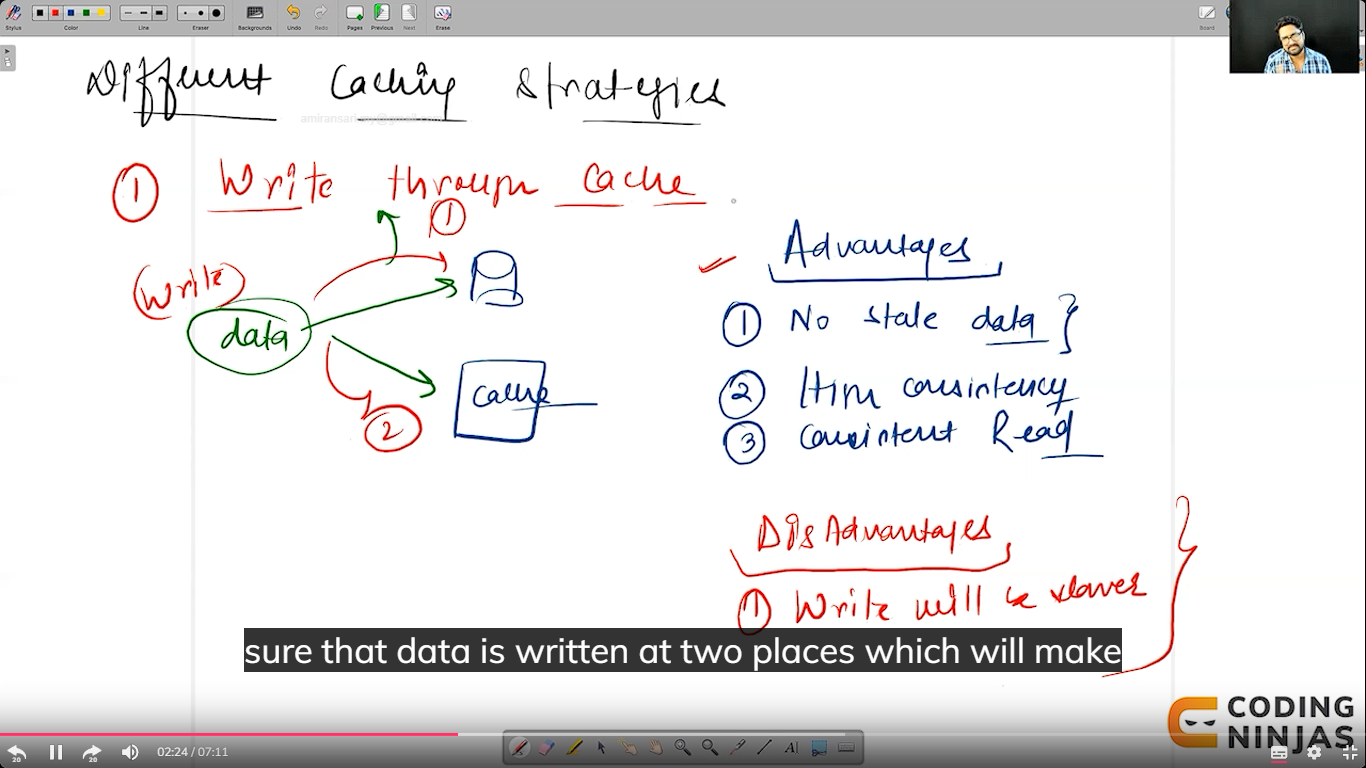 Stylus Color Line Eraser Backgrounds Undo Redo Pages Previous Next Erase Board
Different Caching Strategies
① Write through Cache
①
(Write)
data
Cache
②
Advantages
① No stale data
② High consistency
③ Consistent Read
DisAdvantages
① Write will be slower
sure that data is written at two places which will make
CODING
NINJAS
20 20 02:24 / 07:11